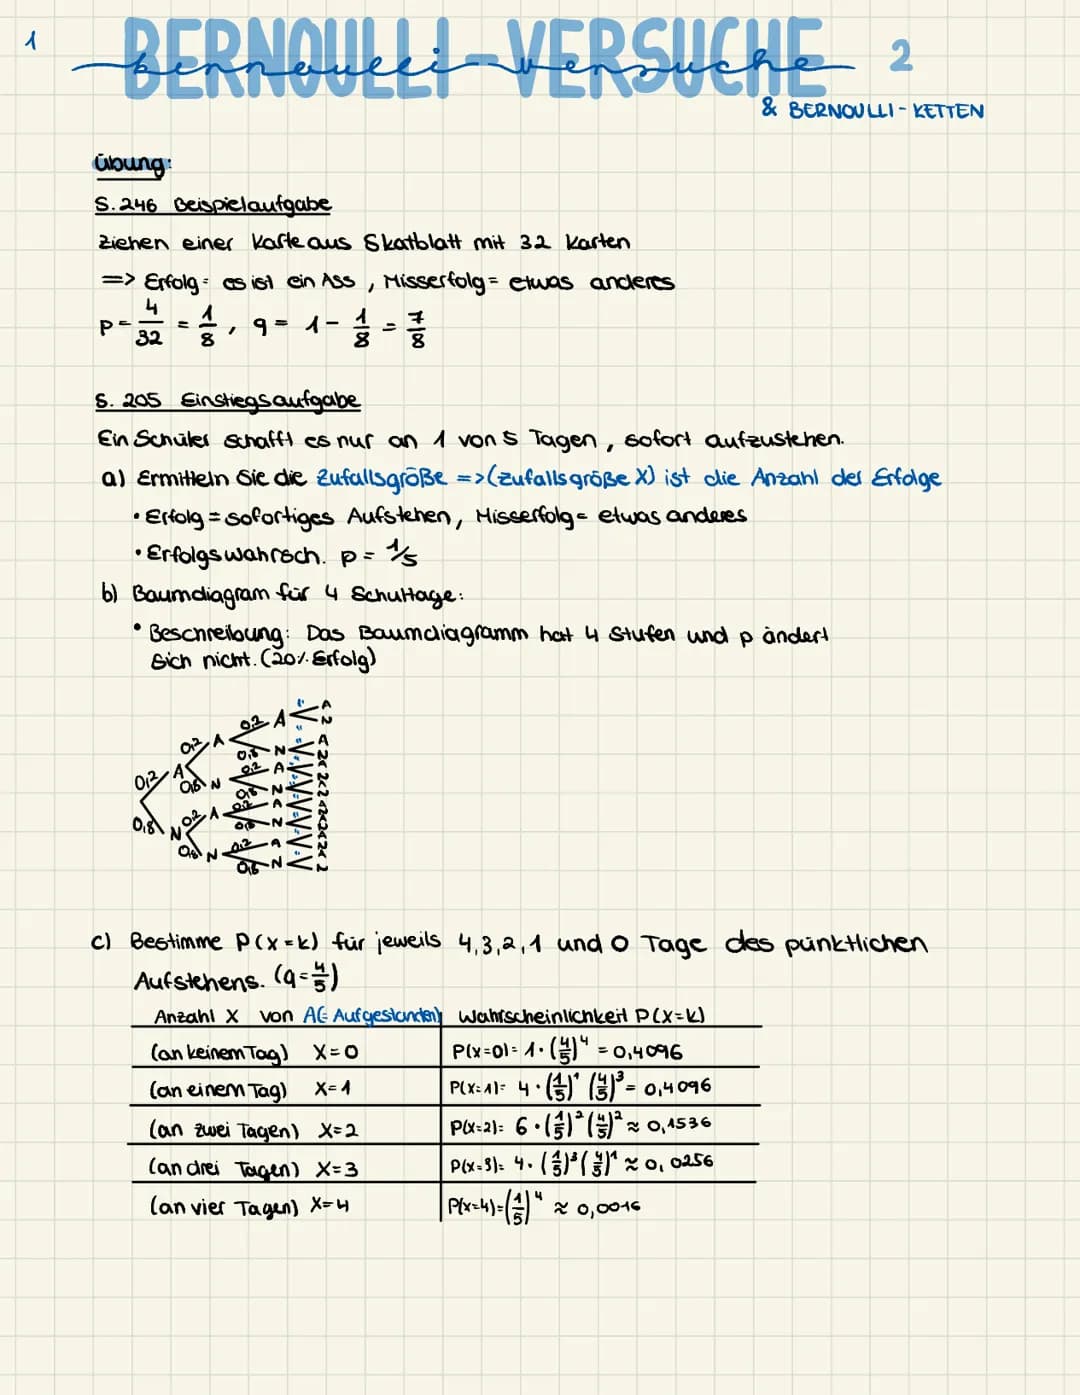 1
BERNOULLI-VERSUCHE 2
bernoulli-versuche
& BERNOULLI-KETTEN
Übung:
S. 246 Beispielaufgabe
Ziehen einer Karte aus Skatblatt mit 32 Karten
=> Erfolg = es ist ein Ass, Misserfolg = etwas anderes
p = 4/32 = 1/8, q = 1 - 1/8 = 7/8
S. 205 Einstiegsaufgabe
Ein Schüler schafft es nur an 1 von 5 Tagen, sofort aufzustehen.
a) Ermitteln Sie die Zufallsgröße => (Zufallsgröße X) ist die Anzahl der Erfolge
• Erfolg = sofortiges Aufstehen, Misserfolg = etwas anderes
• Erfolgswahrsch. p = 1/5
b) Baumdiagram für 4 Schultage:
• Beschreibung: Das Baumdiagramm hat 4 Stufen und p ändert
sich nicht. (20% Erfolg)
0,2 A 0,8 N
0,2 A 0,8 N 0,2 A 0,8 N
0,2 A 0,8 N 0,2 A 0,8 N 0,2 A 0,8 N 0,2 A 0,8 N
A N A N A N A N A N A N A N A N
c) Bestimme P(X=k) für jeweils 4,3,2,1 und 0 Tage des pünktlichen
Aufstehens. (q=4/5)
Anzahl X von A(= Aufgestanden) Wahrscheinlichkeit P(X=k)
(an keinem Tag) X=0 P(X=0)= 1·(4/5)^4 = 0,4096
(an einem Tag) X=1 P(X=1)= 4·(1/5)^1 (4/5)^3 = 0,4096
(an zwei Tagen) X=2 P(X=2)= 6·(1/5)^2 (4/5)^2 ≈ 0,1536
(an drei Tagen) X=3 P(X=3)= 4·(1/5)^3 (4/5)^1 ≈ 0,0256
(an vier Tagen) X=4 P(X=4)=(1/5)^4 ≈ 0,0016